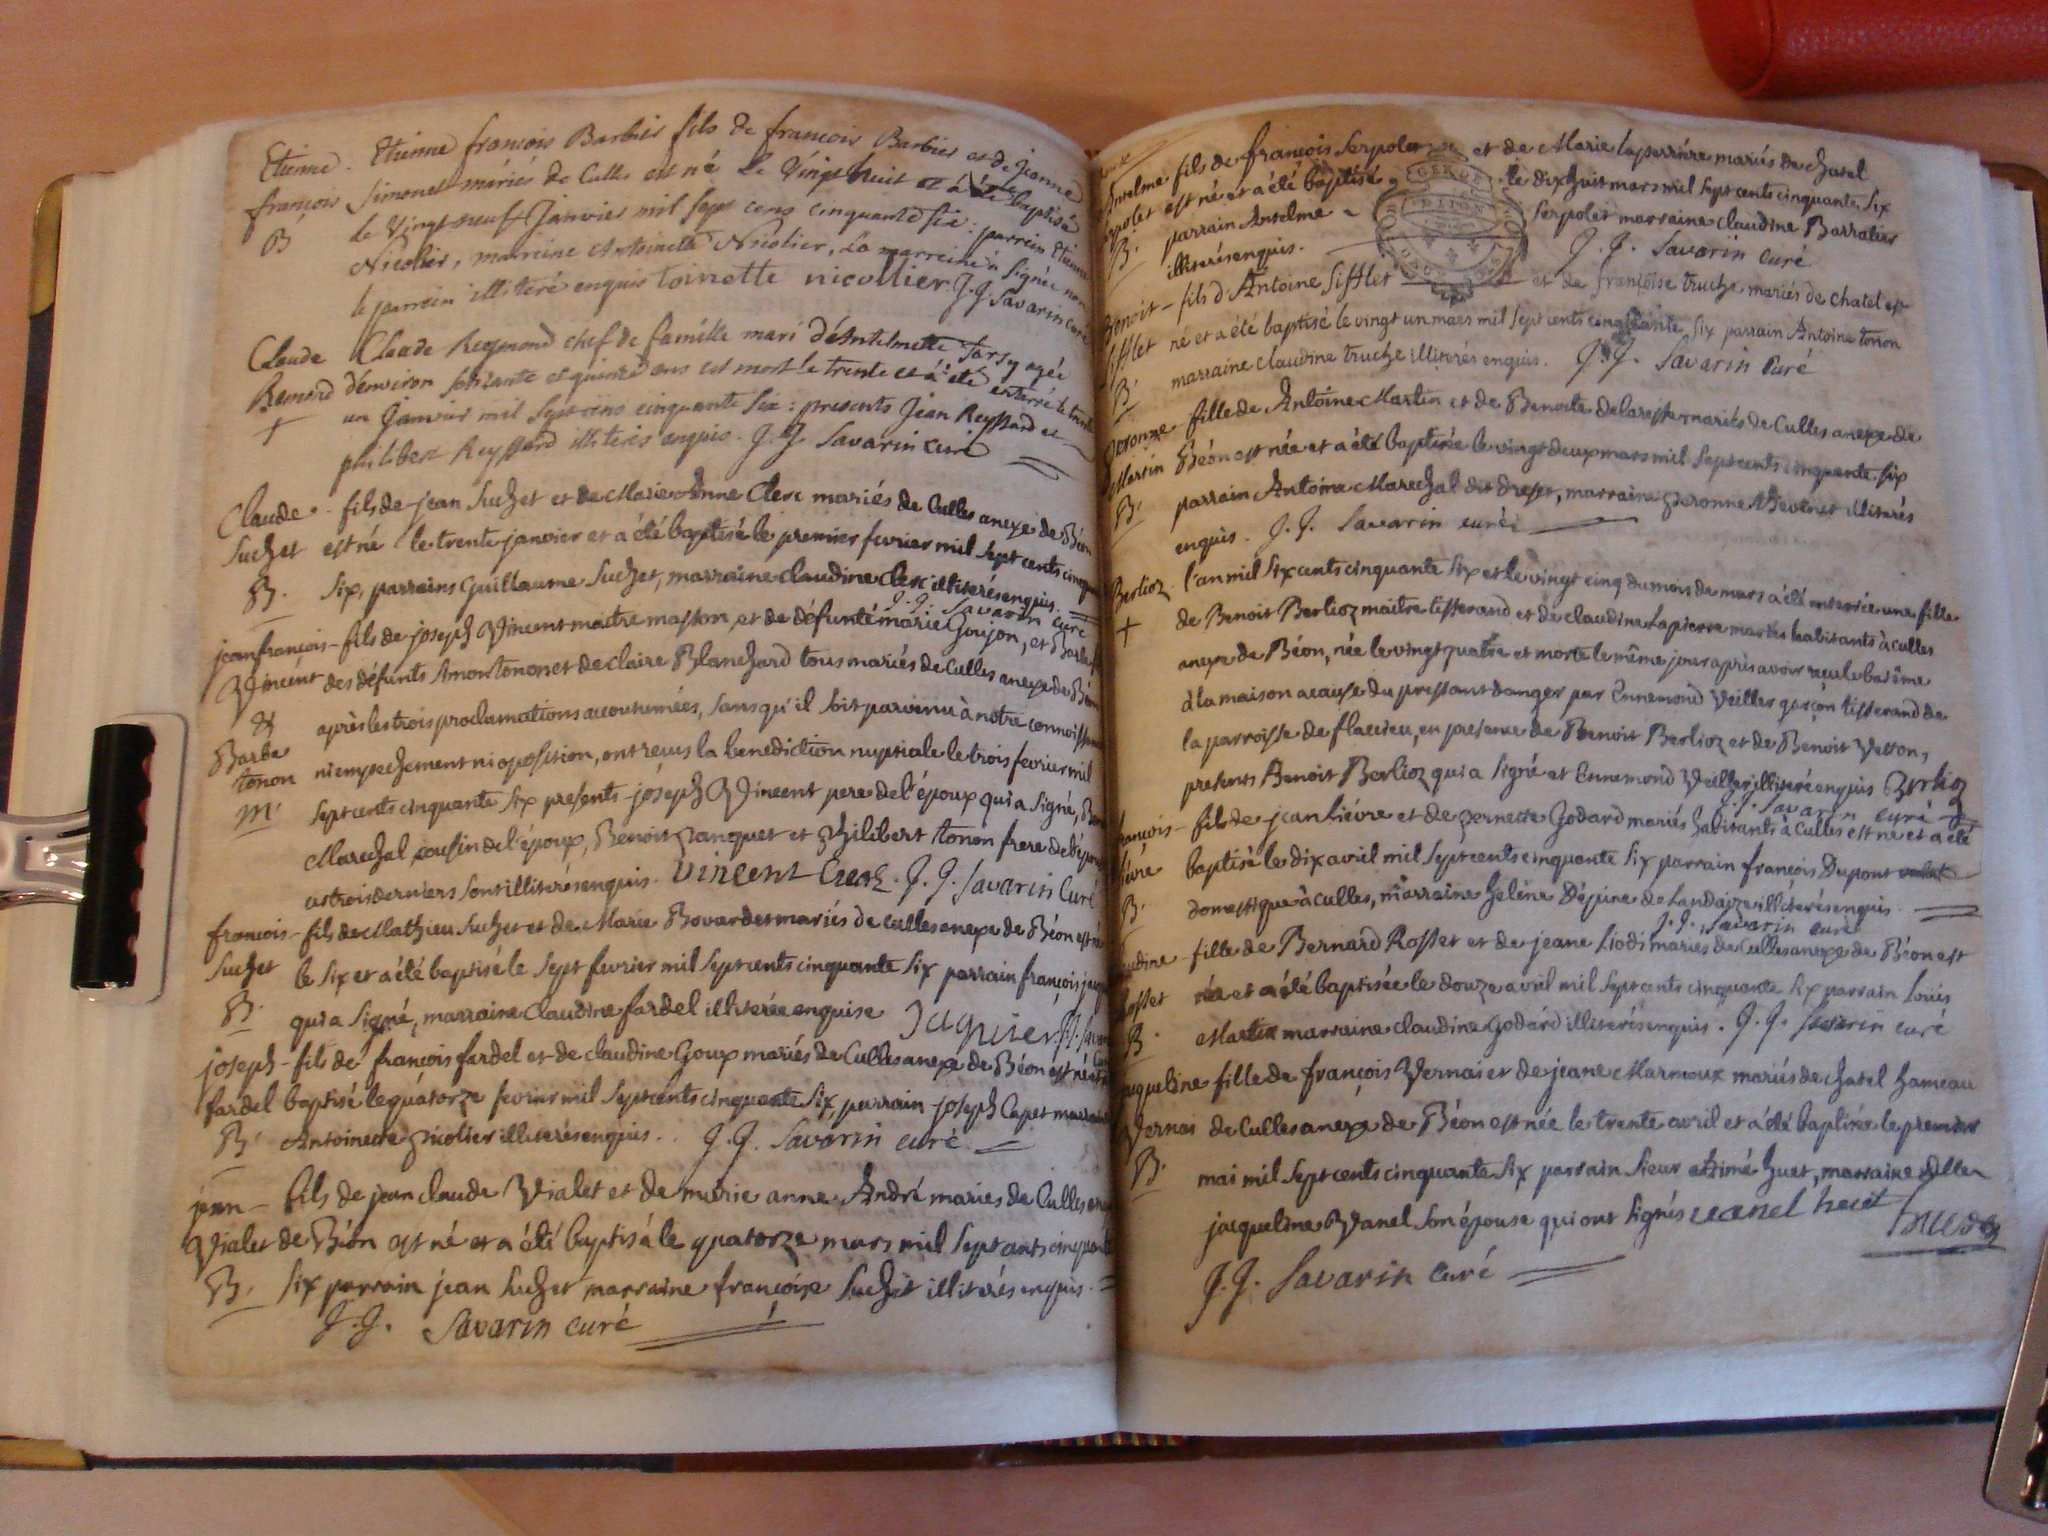 Etienne. Etienne françois Barbier fils de francois Barbier et de Jeanne
françois Simonet mariés de Culles est né le Vingt huit et a été baptisé
B le Vingt neuf Janvier mil sept cens cinquante six: parrein Etienne
Nicolier, marreine Antoinette Nicolier, La marreine a Signée non
le parrein illiteré enquis toinette nicollier J.J. Savarin Curé
Claude Claude Reymond chef de famille mari d'Anthelmette agée
Remond d'environ soixante et quinze ans est mort le trente et a été enterré le trente
+ un Janvier mil sept cens cinquante six: presents Jean Reyssard et
philibert Reyssard illiterés enquis. J.J. Savarin curé
Claude - fils de jean Suchet et de Marie Anne Clerc mariés de Culles anexe de Béon
Suchet est né le trente janvier et a été baptisé le premier fevrier mil sept cents cinquante
B. six, parrains Guillaume Suchet, marraine claudine Clerc illiterés enquis.
J.J. Savarin curé
jean françois - fils de joseph Vincent maitre masson, et de défunte marie Goujon, et Barbe
Vincent des défunts Amon tonon et de claire Blanchard tous mariés de Culles anexe de Béon
& après les trois proclamations accoutumées, sans qu'il soit parvenu à notre connoissance
Barbe ni empechement ni oposition, ont reçus la benediction nuptiale le trois fevrier mil
tonon
m. sept cents cinquante six presents joseph Vincent pere de l'époux qui a signé,
Marechal cousin de l'époux, Benoit et philibert tonon frere de l'épouse
ces trois derniers sont illiterés enquis. Vincent J.J. Savarin Curé
francois - fils de Mathieu Suchet et de Marie Bovardet mariés de culles anexe de Béon est né
Suchet le six et a été baptisé le sept fevrier mil sept cents cinquante six parrain françois
B. qui a signé, marraine claudine fardel illiterée enquise Jaquier J.J. Savarin
joseph - fils de françois fardel et de claudine Goux mariés de Culles anexe de Béon est né
fardel baptisé le quatorze fevrier mil sept cents cinquante six, parrain joseph Capet marraine
B. Antoinette nicolier illiterés enquis. J.J. Savarin curé
jean - fils de jean claude Vialet et de marie anne André mariés de Culles anexe
Vialet de Béon est né et a été baptisé le quatorze mars mil sept cents cinquante
B. six parrain jean Suchet marraine françoise Suchet illiterés enquis.
J.J. Savarin curé
Anselme fils de françois Serpolet et de Marie laperrière mariés de chatel
est né et a été baptisé le dix huit mars mil sept cents cinquante six
B. parrain Anselme Serpolet marraine claudine Barralier
illiterés enquis. J.J. Savarin curé
Benoit - fils d'Antoine Sifflet et de françoise truche mariés de chatel est
Sifflet né et a été baptisé le vingt un mars mil sept cents cinquante six parrain Antoine tonon
B. marraine claudine truche illiterés enquis. J.J. Savarin Curé
peronne - fille de Antoine Martin et de Benoite mariés de Culles anexe de
Martin Béon est née et a été baptisée le vingt deux mars mil sept cents cinquante six
B. parrain Antoine Marechal dit, marraine peronne Thevenet illiterés
enquis. J.J. Savarin curé
Berlioz. l'an mil six cents cinquante six et le vingt cinq du mois de mars a été enterrée une fille
+ de Benoit Berlioz maitre tisserand et de claudine Lapierre mariés habitants à culles
anexe de Béon, née le vingt quatre et morte le même jour après avoir reçu le batême
à la maison a cause du pressant danger par Ennemond Veillet garçon tisserand de
la parroisse de flaxieu, en presence de Benoit Berlioz et de Benoit Vetton,
presents Benoit Berlioz qui a signé et Ennemond Veillet illiteré enquis Berlioz
J.J. Savarin curé
françois - fils de jean Lièvre et de pernette Godard mariés habitants à culles est né et a été
Lièvre baptisé le dix avril mil sept cents cinquante six parrain françois Dupont valet
B. domestique à culles, marraine heléne Dépine de Landaize illiterés enquis.
J.J. Savarin curé
claudine - fille de Bernard Rosset et de jeane Siodi mariés de Culles anexe de Béon est
Rosset née et a été baptisée le douze avril mil sept cents cinquante six parrain Loüis
B. Martin marraine claudine Godard illiterés enquis. J.J. Savarin curé
jaqueline fille de françois Vernai et de jeane Marmoux mariés de chatel hameau
Vernai de Culles anexe de Béon est née le trente avril et a été baptisée le premier
B. mai mil sept cents cinquante six parrain Sieur huet, marraine dlle
jacqueline Vanel son épouse qui ont signés vanel huet huet
J.J. Savarin curé